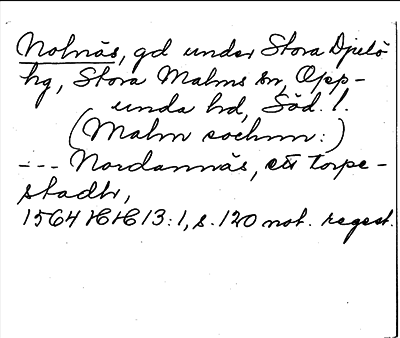 Nolnäs, gd under Stora Djulö
hg, Stora Malms sn, Opp-
unda hd, Söd. l.
(Malm sochnn:)
--- Nordannäs, ett torpe-
stadh,
1564 HH 13:1, s. 120 not. regest.